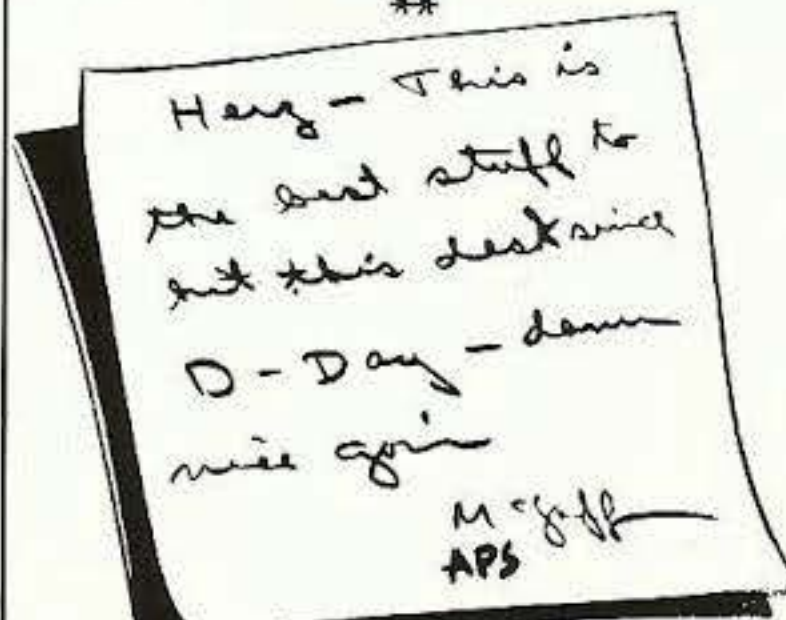 **
Herz - This is
the best stuff to
hit this desk since
D-Day - damn
nice goin
McGaff
APS